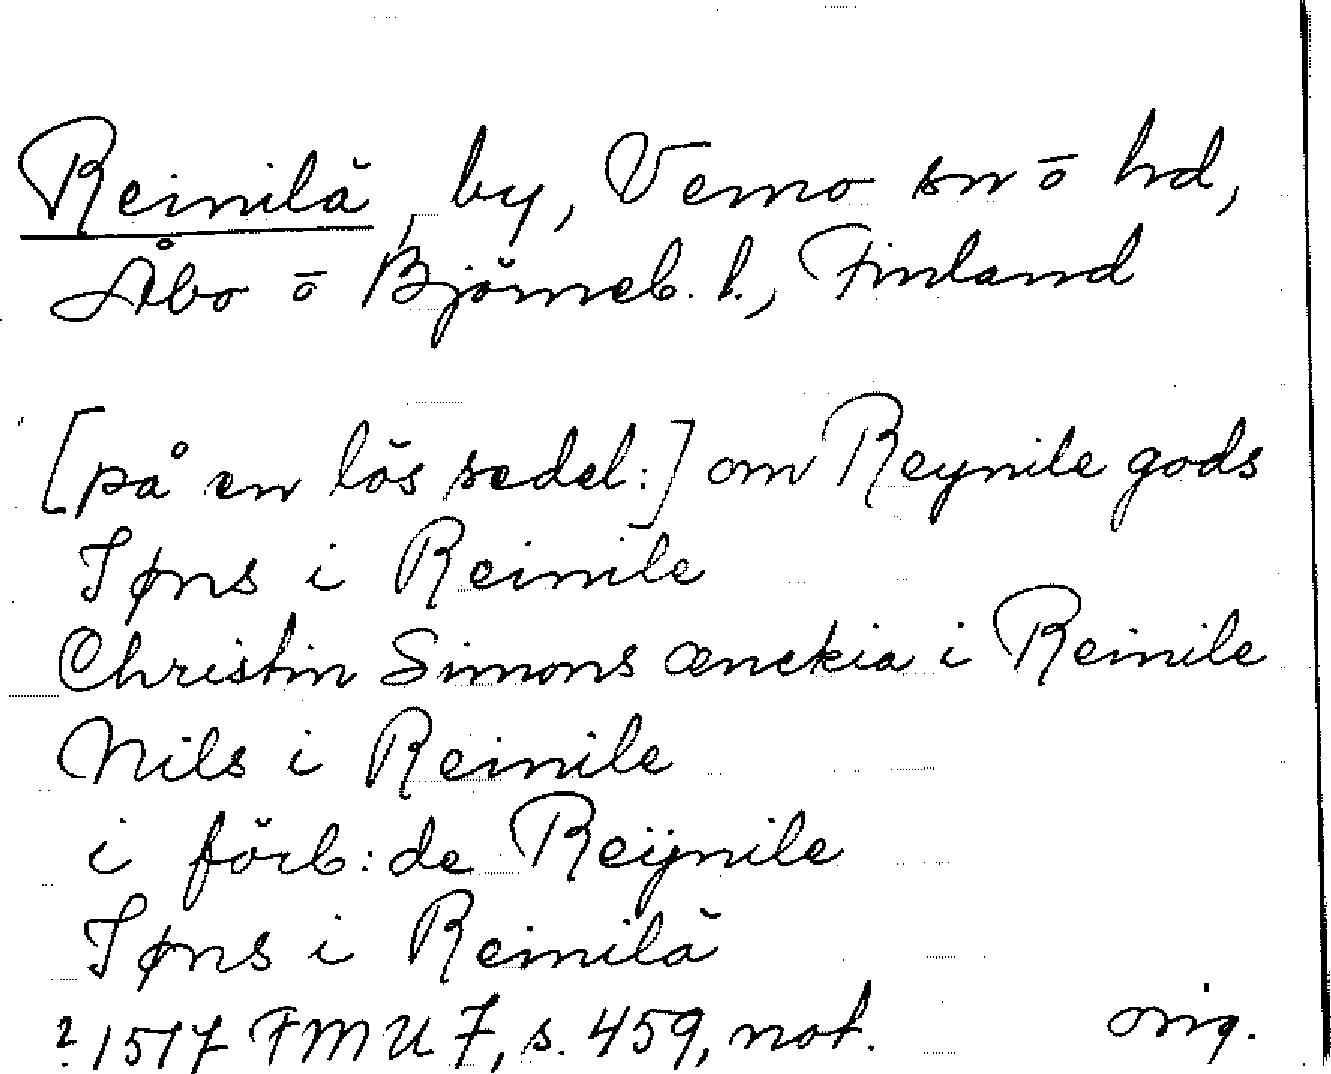 Reinilä, by, Vemo sn o hd,
Åbo o Björneb. l., Finland
[på en lös sedel:] om Reynile gods
Jøns i Reinile
Christin Simons ænckia i Reinile
Nils i Reinile
i förb:de Reijnile
Jøns i Reinilä
?1517 FMU 7, s. 459, not. orig.